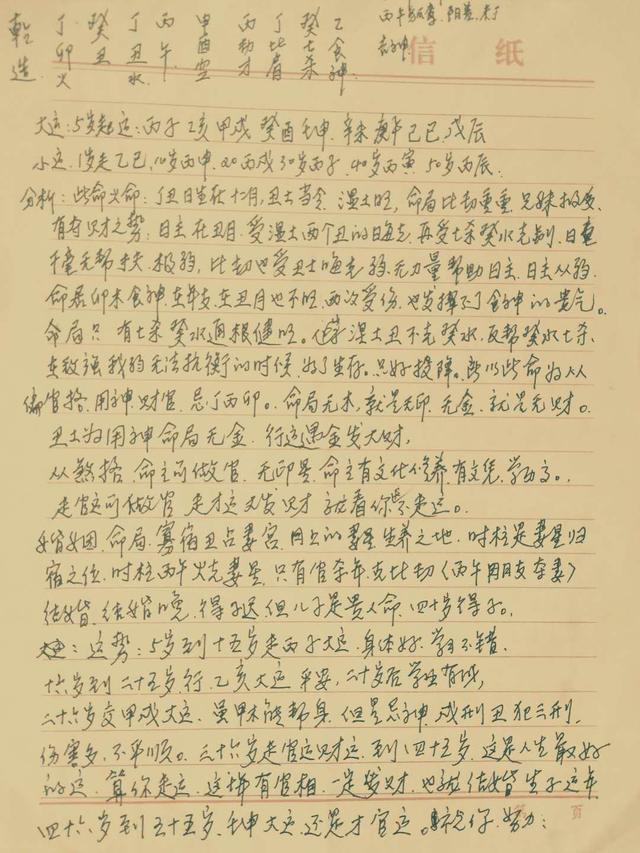 乾 丁 癸 丁 丙 甲 丙 丁 癸 乙
卯 丑 丑 午 酉 劫 比 七 食
造 火 水 空 才 肩 杀 神
信 纸
大运:5岁起运:丙子 乙亥 甲戌 癸酉 壬申 辛未 庚午 己巳 戊辰
小运 1岁走乙巳,10岁丙申 20丙戌 30岁丙子 40岁丙寅 50岁丙辰
分析:此命火命:丁丑日生在十二月,丑土当令 湿土旺,命局比劫重重 兄妹
有夺财之势:日主在丑月 受湿土两个丑的晦克 再受七杀癸水克制 日
干毫无帮扶 极弱,比劫也受丑土晦克弱 无力量帮助日主 日主从弱
命局卯木食神在年支 在丑月也不旺 两次受伤 也发挥了食神的贵气。
命局只有七杀癸水通根健旺。湿土丑不克癸水 反帮癸水七杀、
在敌强我弱无法抗衡的时候 为了生存。只好投降。所以此命为从
偏官格 用神财官 忌丁丙卯。命局无木 就是无印 无金 就是无财。
丑土为用神命局无金 行运遇金发大财,
从煞格 命主可做官 无印星 命主有文化修养 有文凭 学历高。
走官运可做官 走才运又发财 就看你啥走运。
婚姻 命局 寡宿丑占妻宫 月上的妻星生养之地 时柱是妻星归
宿之位 时柱丙午火克妻星 只有官杀年 克比劫(丙午用朋友夺妻)
结婚 结婚晚 得子迟 但儿子是贵人命 四十岁得子。
运势:5岁到十五岁走丙子大运 身体好 学习不错
十六岁到二十五岁行 乙亥大运 平安,二十岁后学业有成,
二十六岁交甲戌大运 虽甲木能帮身 但是忌神 戌刑丑犯三刑
伤害多 不平顺。三十六岁走官运财运 到四十五岁 这是人生最好
的运 算你走运 这步有官相 一定发财 也能结婚生子这年
四十六岁到五十五岁 壬申大运 还是才官运。努力:
页